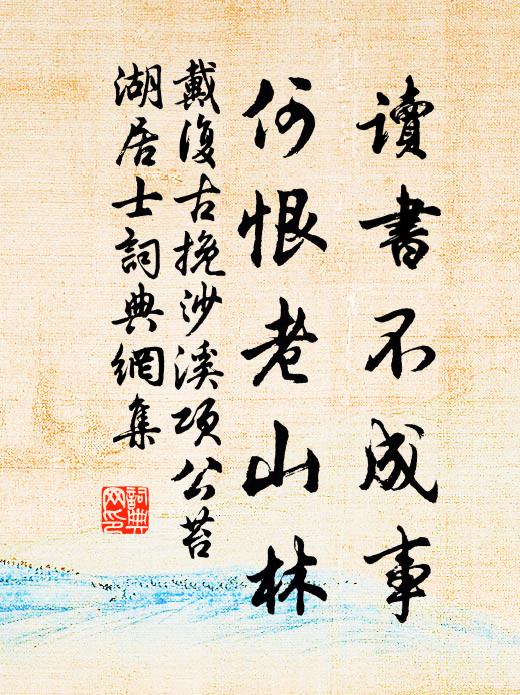 讀書不成事
何恨老山林
戴復古挽沙溪項公苔
湖居士詞典網集
詞典
网印